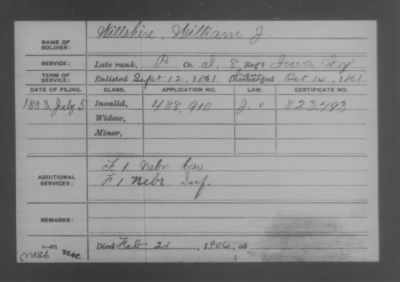 Willshire, William J.
NAME OF
SOLDIER:
SERVICE: Late rank, Co. I, 8 Reg't Iowa Inf
TERM OF
SERVICE: Enlisted Sept 12, 1861 Discharged Oct 14, 1861
DATE OF FILING. CLASS. APPLICATION NO. LAW. CERTIFICATE NO.
1883 July 5 Invalid, 488,910 823,493
Widow,
Minor,
F 1 Nebr Cav
ADDITIONAL
SERVICES: F 1 Nebr Inf.
REMARKS:
Died Feb 21, 1906, at